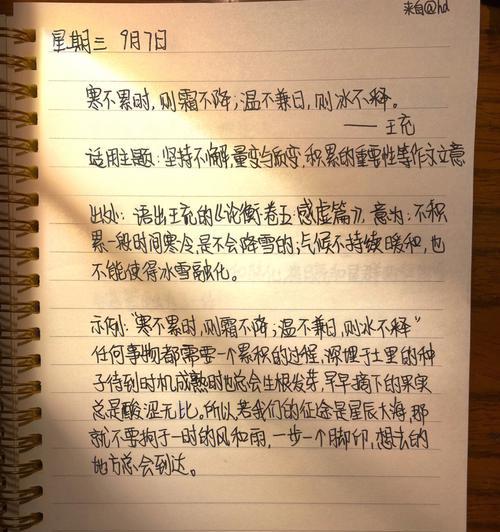 来自@hd
星期三 9月7日
寒不累时,则霜不降;温不兼日,则冰不释。
——王充
适用主题:坚持不懈,量变与质变,积累的重要性等作文立意
出处:语出王充的《论衡·卷五·感虚篇》,意为:不积
累一段时间寒冷是不会降雪的;气候不持续暖和,也
不能使得冰雪融化。
示例:"寒不累时,则霜不降;温不兼日,则冰不释"
任何事物都需要一个累积的过程,深埋于土里的种
子待到时机成熟时也总会生根发芽,早早摘下的果实
总是酸涩无比,所以若我们的征途是星辰大海,那
就不要拘于一时的风和雨,一步一个脚印,想去的
地方总会到达。